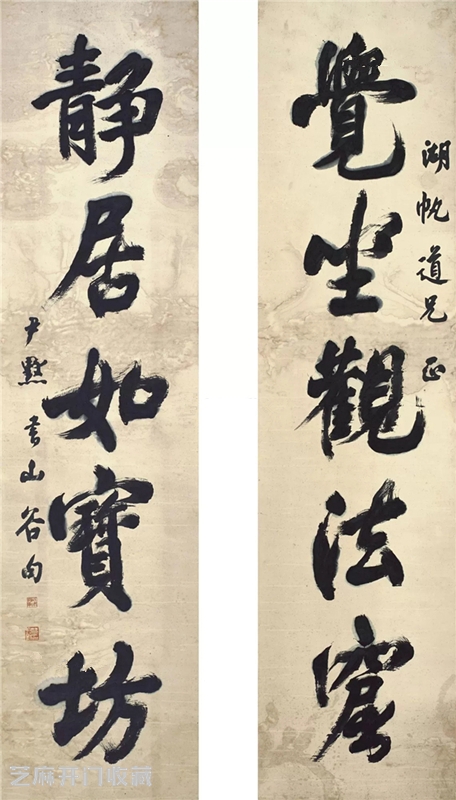 湖帆道兄正
覺坐觀法窟
静居如寶坊
尹默書山谷句
芝麻开门收藏